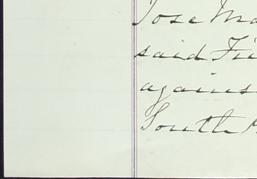 Jose Ma
said Fi
against
South